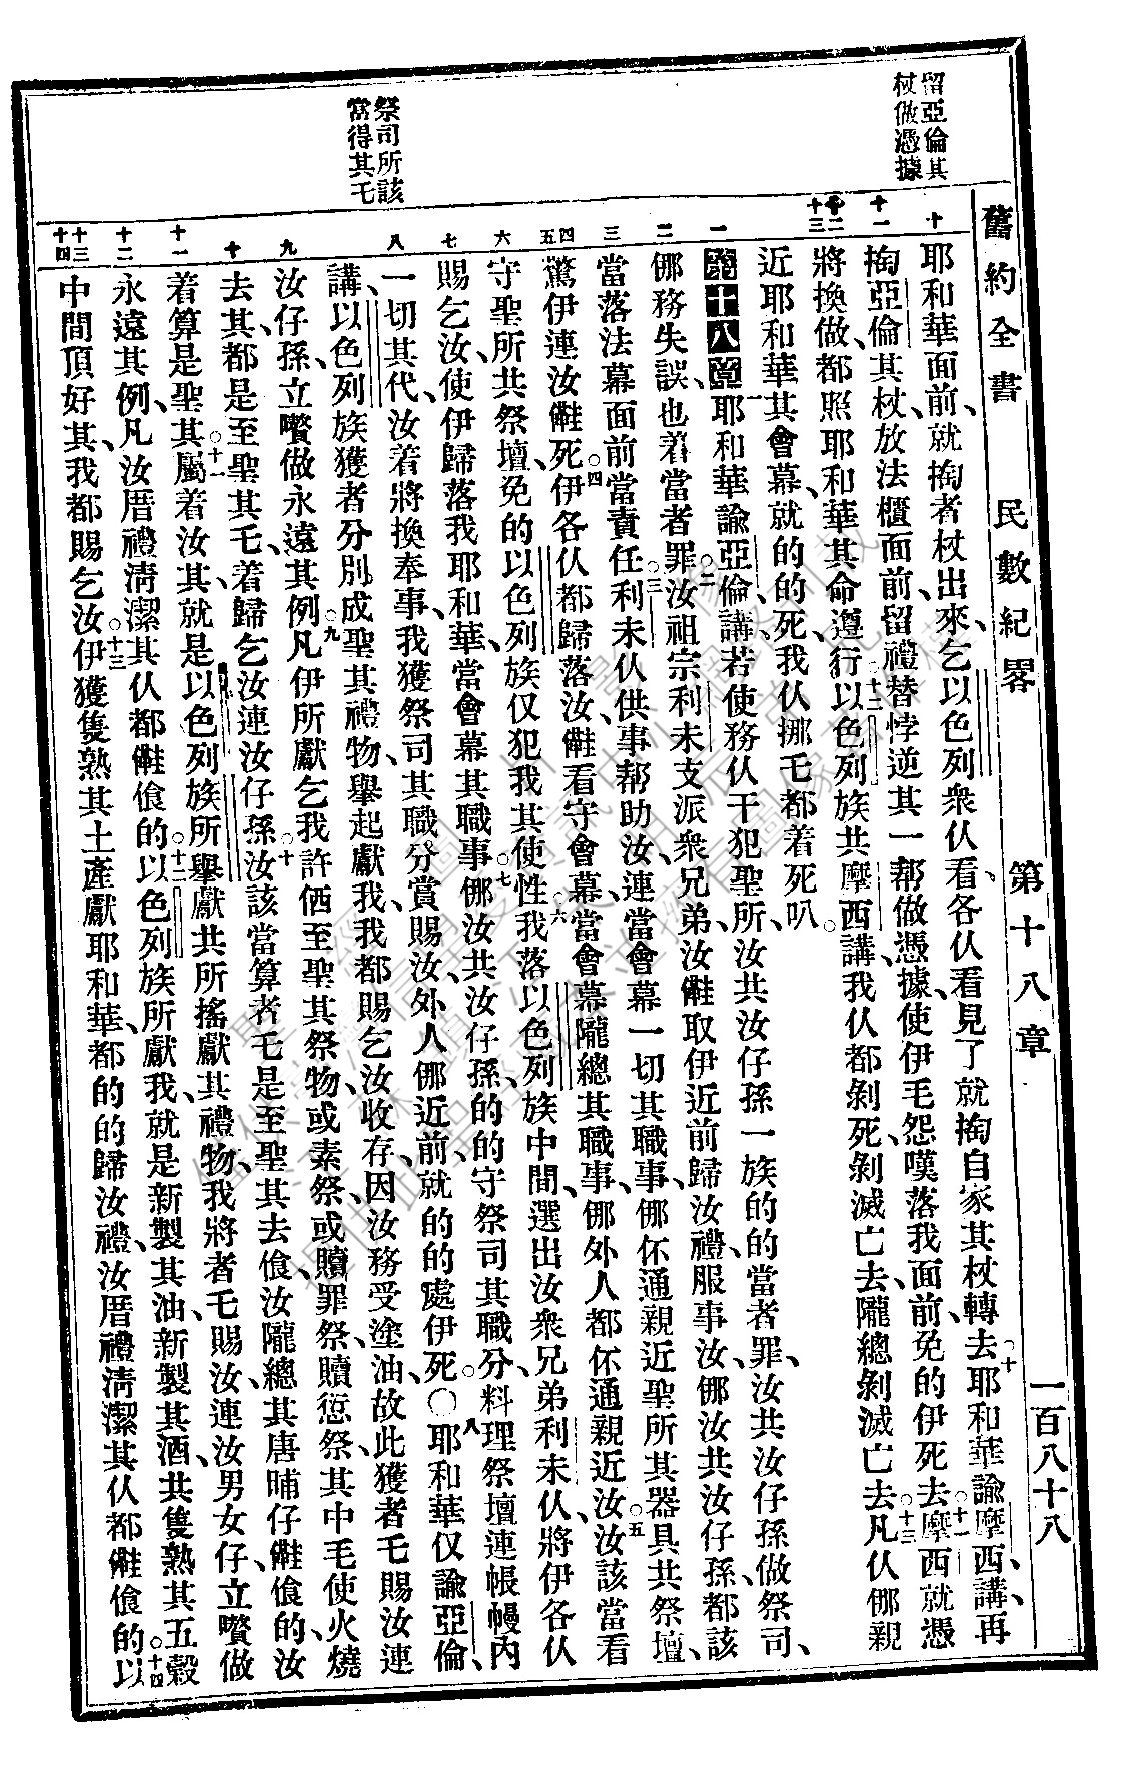 舊約全書　民數紀畧　第十八章　一百八十八
留亞倫其
杖做憑據
祭司所該
當得其乇
十
十一
十二
十三
一
二
三
四
五
六
七
八
九
十
十一
十二
十三
十四
耶和華面前、就掏者杖出來、乞以色列衆仈看、各仈看見了就掏自家其杖轉去○十耶和華諭摩西講、再
掏亞倫其杖放法櫃面前、留禮替悖逆其一帮做憑據、使伊毛怨嘆落我面前、免的伊死去○十一摩西就憑
將換做、都照耶和華其命遵行○十二以色列族共摩西講、我仈都剝死、剝滅亡去、隴總剝滅亡去○十三凡仈㑚親
近耶和華其會幕、就的的死、我仈挪乇都着死叭○
第十八章 一耶和華諭亞倫講、若使務仈干犯聖所、汝共汝仔孫一族的的當者罪、汝共汝仔孫做祭司、
㑚務失誤、也着當者罪○二汝祖宗利未支派衆兄弟、汝㒤取伊近前歸汝禮、服事汝、㑚汝共汝仔孫、都該
當落法幕面前當責任○三利未仈供事帮助汝、連當會幕一切其職事、㑚伓通親近聖所其器具共祭壇、
驚伊連汝㒤死○四伊各仈都歸落汝、㒤看守會幕、當會幕隴總其職事、㑚外人都伓通親近汝○五汝該當看
守聖所共祭壇、免的以色列族仅犯我其使性○六我落以色列族中間、選出汝衆兄弟利未仈、將伊各仈
賜乞汝、使伊歸落我耶和華、當會幕其職事○七㑚汝共汝仔孫、的的守祭司其職分、料理祭壇連帳幔內
一切其代、汝着將換奉事、我獲祭司其職分賞賜汝、外人㑚近前、就的的處伊死○〇八耶和華仅諭亞倫
講、以色列族獲者分別成聖其禮物、舉起獻我、我都賜乞汝收存、因汝務受塗油、故此獲者乇賜汝連
汝仔孫、立嚽做永遠其例○九凡伊所獻乞我許佰至聖其祭物、或素祭、或贖罪祭、贖愆祭、其中乇使火燒
去其、都是至聖其乇、着歸乞汝連汝仔孫○十汝該當算者乇是至聖其去飡、汝隴總其唐晡仔㒤飡的、汝
着算是聖其○十一屬着汝其、就是以色列族所舉獻共所搖獻其禮物、我將者乇賜汝、連汝男女仔、立嚽做
永遠其例、凡汝厝禮淸潔其仈都㒤飡的○十二以色列族所獻我、就是新製其油、新製其酒、共隻熟其五穀
中間頂好其、我都賜乞汝○十三伊獲隻熟其土產獻耶和華、都的的歸汝禮、汝厝禮淸潔其仈都㒤飡的○十四以